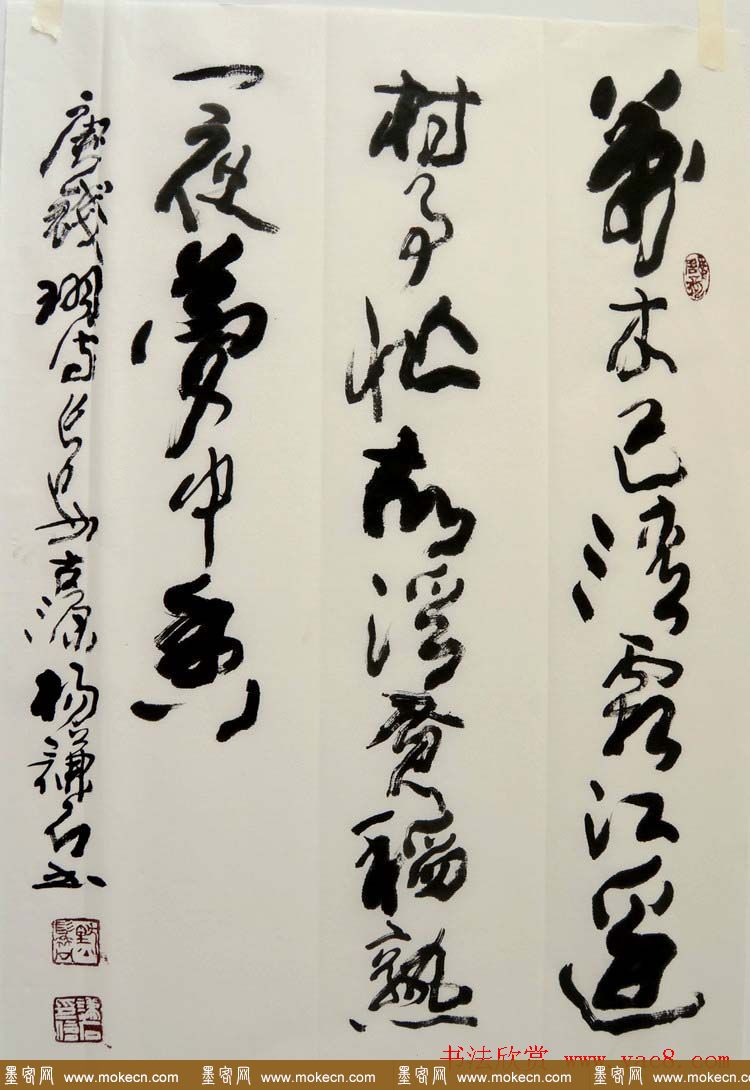 萬木已清霜江邊
村事忙故溪黃稻熟
一夜夢中香
唐錢珝诗古源楊謙石书
书法欣赏 www.yac8.com
墨客网 www.mokecn.com 墨客网 www.mokecn.com 墨客网 www.mokecn.com 墨客网 www.mokecn.com